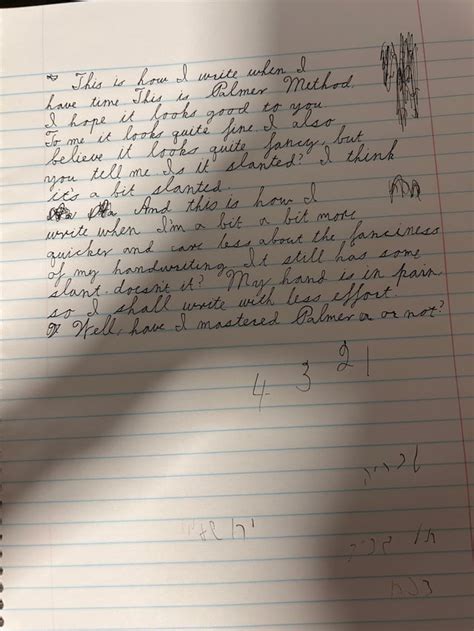 This is how I write when I
have time This is Palmer Method.
I hope it looks good to you.
To me it looks quite fine. I also
believe it looks quite fancy, but
you tell me Is it slanted? I think
it's a bit slanted.
And this is how I
write when I'm a bit a bit more
quicker and care less about the fanciness
of my handwriting. It still has some
slant doesn't it? My hand is in pain
so I shall write with less effort.
Well, have I mastered Palmer or not?
4 3 2 1